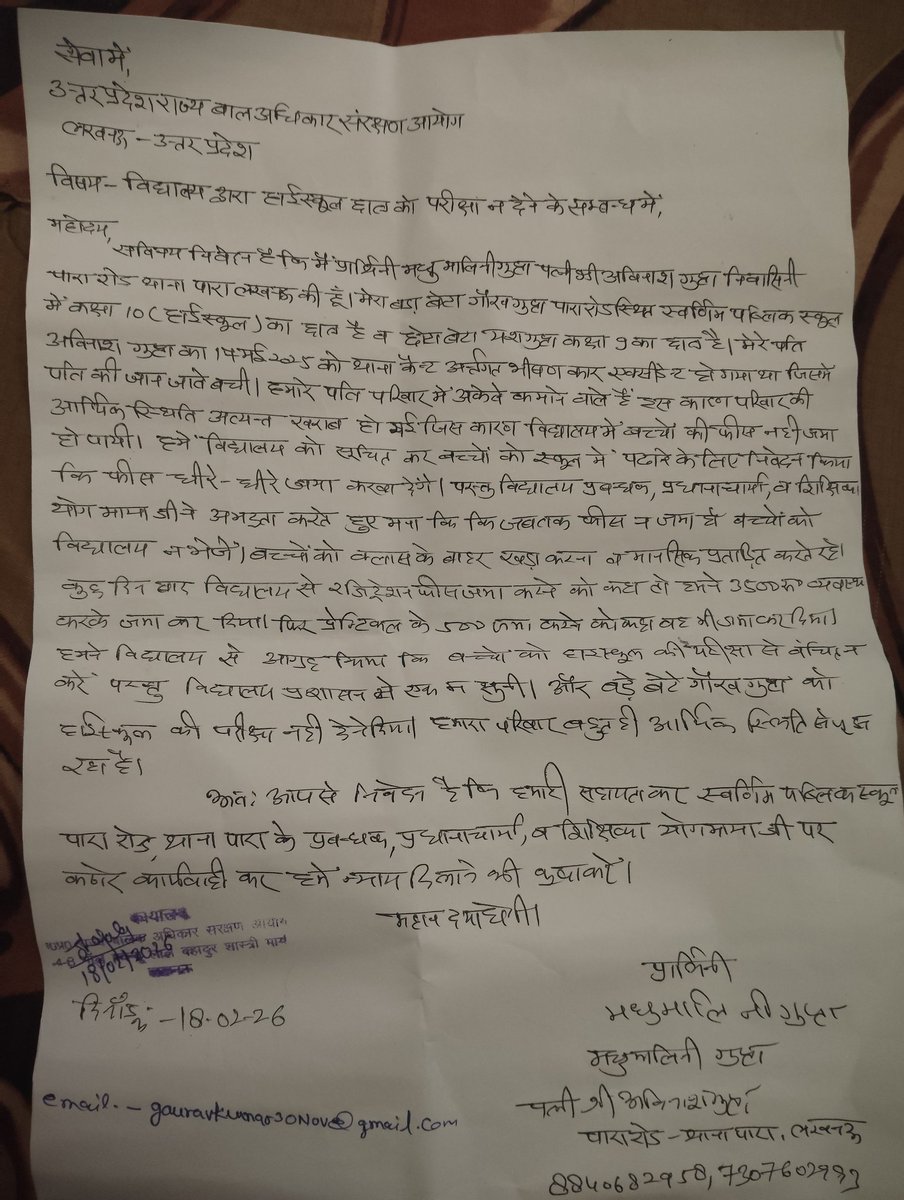 सेवा में,
उत्तर प्रदेश राज्य बाल अधिकार संरक्षण आयोग
लखनऊ - उत्तर प्रदेश
विषय - विद्यालय द्वारा हाईस्कूल छात्र को परीक्षा न देने के सम्बन्ध में,
महोदय,
सविनय निवेदन है कि मैं प्रार्थिनी मधु मालिनी गुप्ता पत्नी श्री अविनाश गुप्ता निवासिनी
पारा रोड थाना पारा लखनऊ की हूँ। मेरा बड़ा बेटा गौरव गुप्ता पारा रोड स्थित स्वर्णिम पब्लिक स्कूल
में कक्षा 10 (हाईस्कूल) का छात्र है व छोटा बेटा यश गुप्ता कक्षा 9 का छात्र है। मेरे पति
अविनाश गुप्ता का मई 2025 को थाना कैन्ट अर्न्तगत भीषण कार एक्सीडेन्ट हो गया था जिसमें
पति की जान जाते बची। हमारे पति परिवार में अकेले कमाने वाले हैं इस कारण परिवार की
आर्थिक स्थिति अत्यन्त खराब हो गई जिस कारण विद्यालय में बच्चों की फीस नही जमा
हो पायी। हमने विद्यालय को सूचित कर बच्चों को स्कूल में पढ़ाने के लिए निवेदन किया
कि फीस धीरे-धीरे जमा करवा देंगे। परन्तु विद्यालय प्रबन्धक, प्रधानाचार्या, व शिक्षिका
योगमाया जी ने अभद्रता करते हुए मना कि कि जबतक फीस न जमा हो बच्चों को
विद्यालय न भेजें। बच्चों को क्लास के बाहर खड़ा करना व मानसिक प्रताड़ित करते रहे।
कुछ दिन बाद विद्यालय से रजिस्ट्रेशन फीस जमा करने को कहा तो हमने 3500 रू० व्यवस्था
करके जमा कर दिया। फिर प्रेक्टिकल के 500 जमा करने को कहा वह भी जमा कर दिया।
हमने विद्यालय से आग्रह किया कि बच्चों को हाईस्कूल की परीक्षा से वंचित न
करें परन्तु विद्यालय प्रशासन ने एक न सुनी। और बड़े बेटे गौरव गुप्ता को
हाईस्कूल की परीक्षा नही देने दिया। हमारा परिवार बहुत ही आर्थिक स्थिति से जूझ
रहा है।
अतः आप से निवेदन है कि हमारी सहायता कर स्वर्णिम पब्लिक स्कूल
पारा रोड, थाना पारा के प्रबन्धक, प्रधानाचार्या, व शिक्षिका योगमाया जी पर
कठोर कार्यवाही कर हमें न्याय दिलाने की कृपा करें।
महान दया होगी।
अधिकार संरक्षण आयोग
बहादुर शास्त्री मार्ग
18/02/2026
दिनाँक - 18-02-26
प्रार्थिनी
मधुमालिनी गुप्ता
मधुमालिनी गुप्ता
पत्नी श्री अविनाश गुप्ता
पारा रोड - थाना पारा, लखनऊ
email. - gauravkumar30Nov@gmail.com
8840682958,